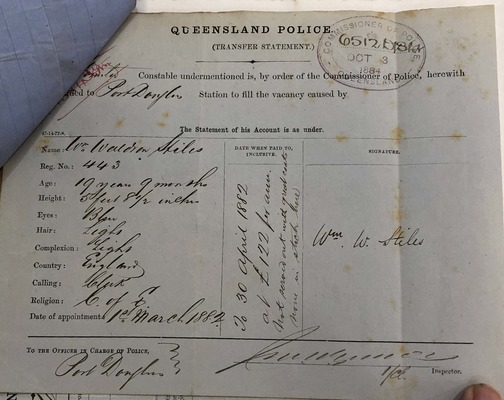 QUEENSLAND POLICE.
(TRANSFER STATEMENT.)
COMMISSIONER OF POLICE
OCT 3
1884
QUEENSLAND
Constable undermentioned is, by order of the Commissioner of Police, herewith
to Port Douglas Station to fill the vacancy caused by
The Statement of his Account is as under.
Name: Wm Waldron Stiles
Reg. No.: 443
Age: 19 years 9 months
Height: 5 feet 8 1/2 inches
Eyes: Blue
Hair: Light
Complexion: Light
Country: England
Calling: Clerk
Religion: C. of E.
Date of appointment: 1st March 1882
DATE WHEN PAID TO, INCLUSIVE.
To 30 April 1882
at £122 per ann.
Not served out with great coats
none in stock here
SIGNATURE.
Wm. W. Stiles
TO THE OFFICER IN CHARGE OF POLICE,
Port Douglas
Inspector.